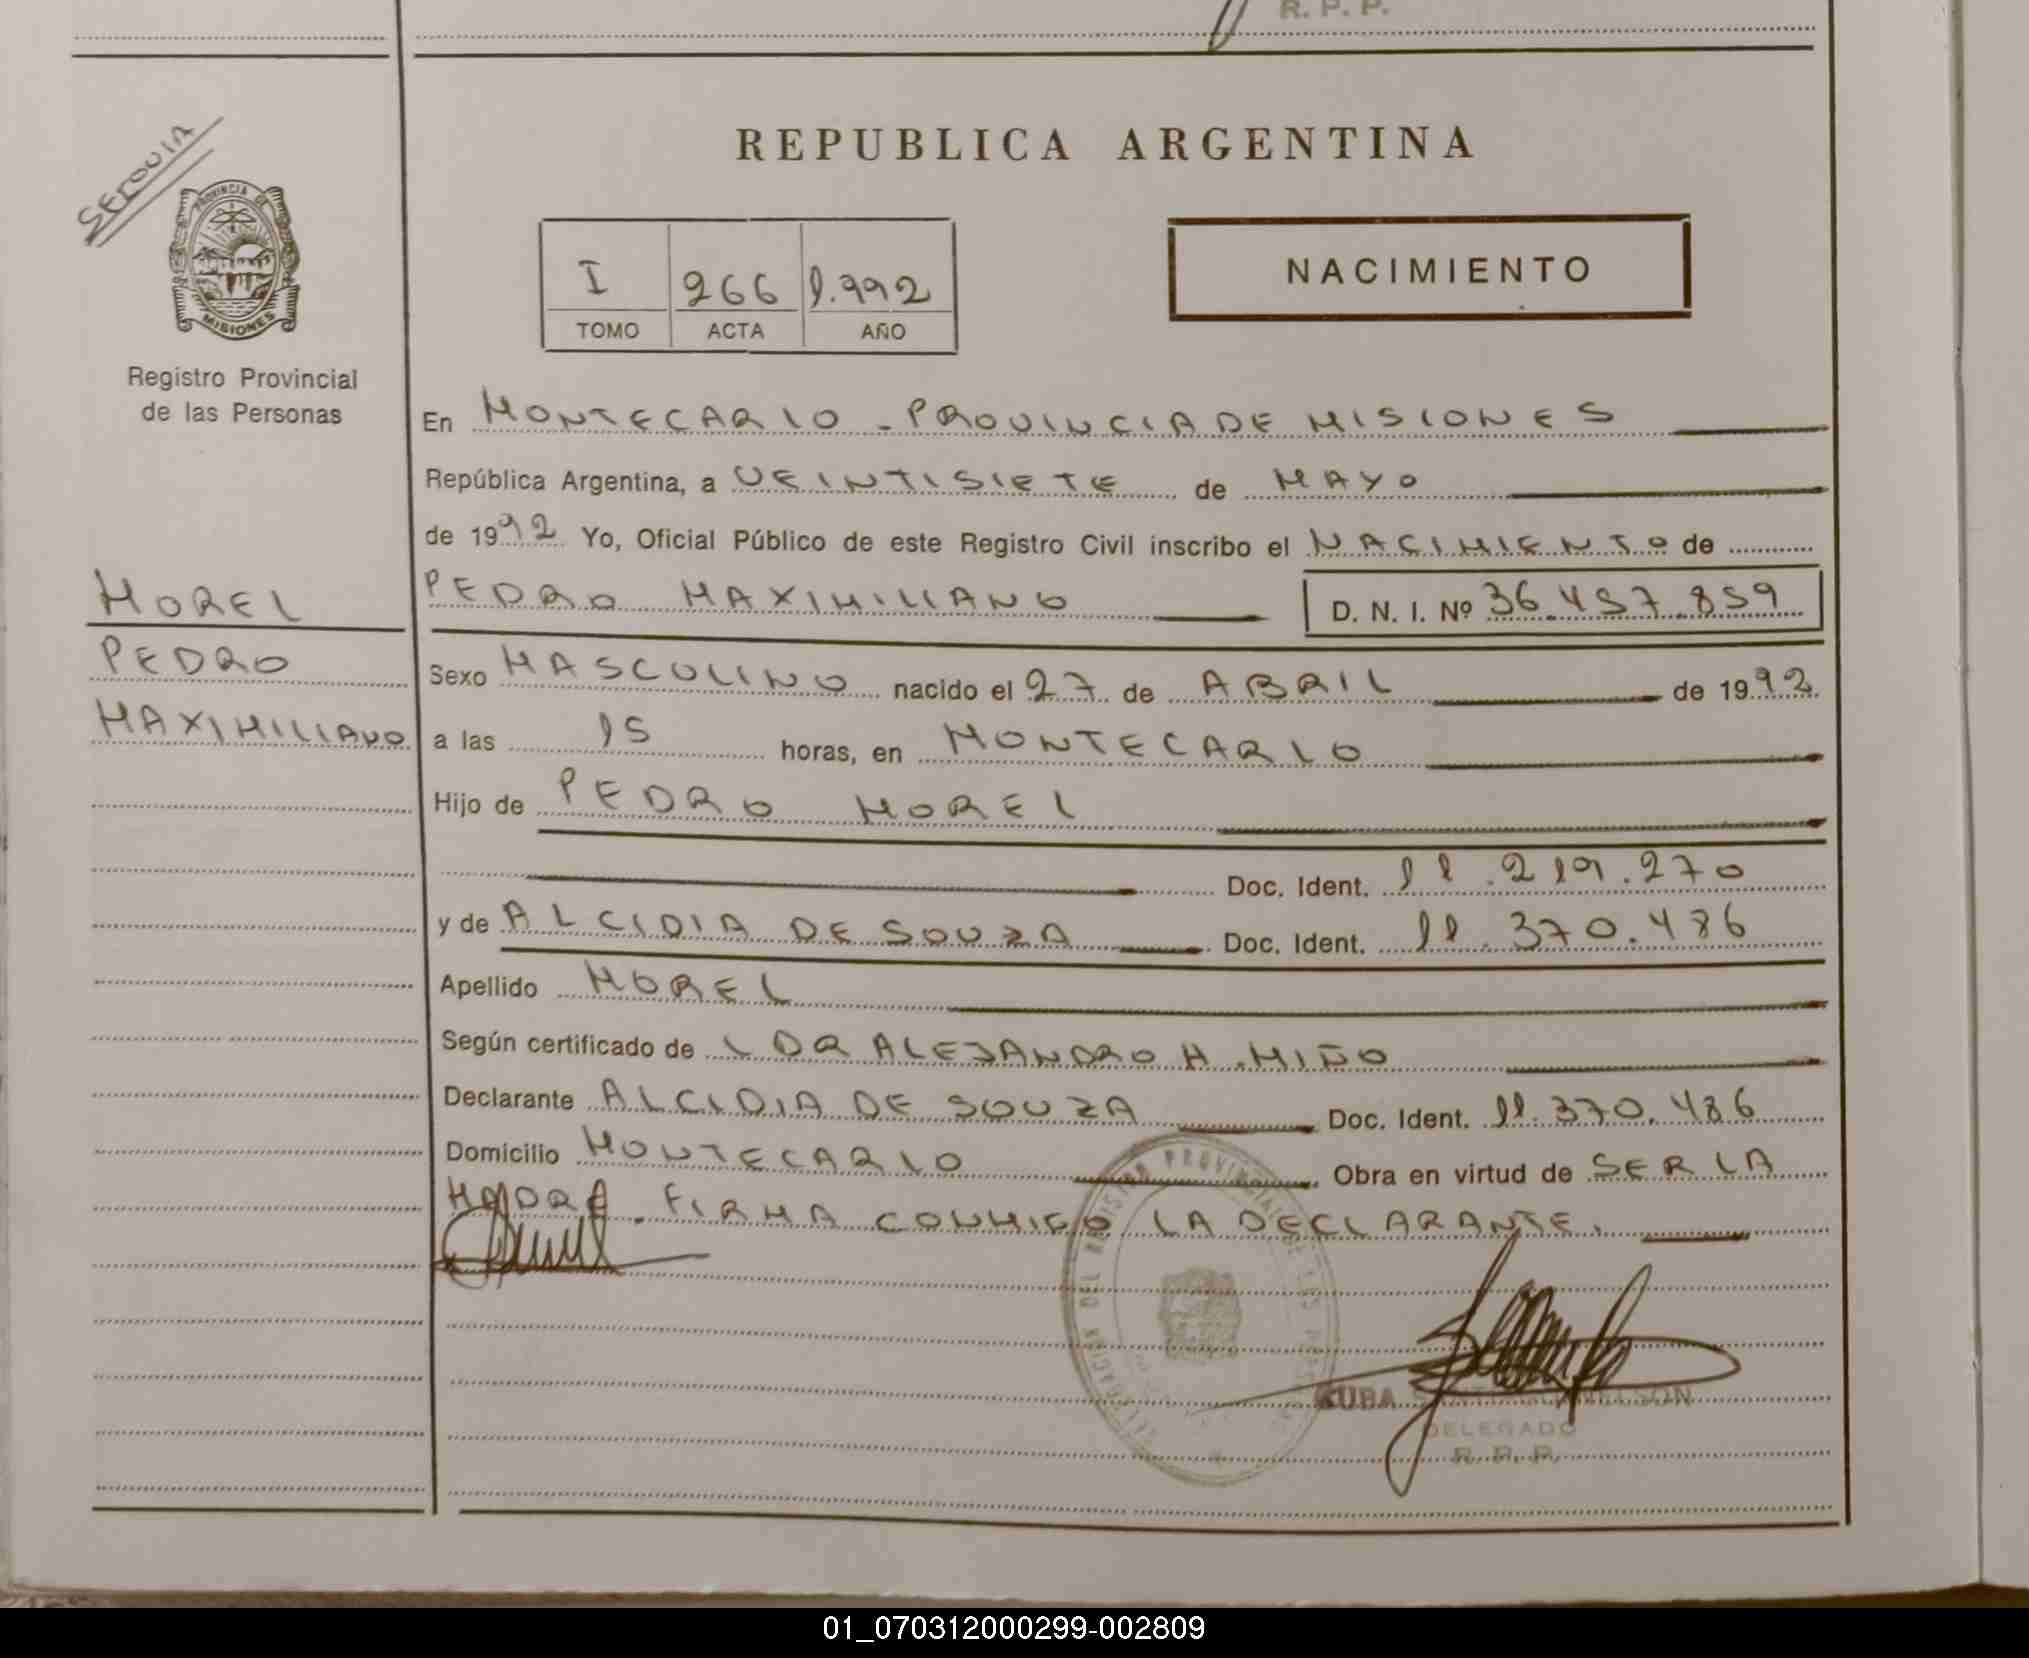 R. P. P.
SEGUIA
PROVINCIA DE
MISIONES
Registro Provincial
de las Personas
MOREL
PEDRO
MAXIMILIANO
REPUBLICA ARGENTINA
I 266 1.992
TOMO ACTA AÑO
NACIMIENTO
En MONTECARLO - PROVINCIA DE MISIONES
República Argentina, a VEINTISIETE de MAYO
de 1992 Yo, Oficial Público de este Registro Civil inscribo el NACIMIENTO de
PEDRO MAXIMILIANO D. N. I. Nº 36.457.859
Sexo MASCULINO nacido el 27 de ABRIL de 1992
a las 15 horas, en MONTECARLO
Hijo de PEDRO MOREL
Doc. Ident. 11.219.270
y de ALCIDIA DE SOUZA Doc. Ident. 11.370.486
Apellido MOREL
Según certificado de L DR ALEJANDRO H. MIÑO
Declarante ALCIDIA DE SOUZA Doc. Ident. 11.370.486
Domicilio MONTECARLO Obra en virtud de SER LA
MADRE. FIRMA CONMIGO LA DECLARANTE.
NELSON
DELEGADO
R. P. P.
01_070312000299-002809